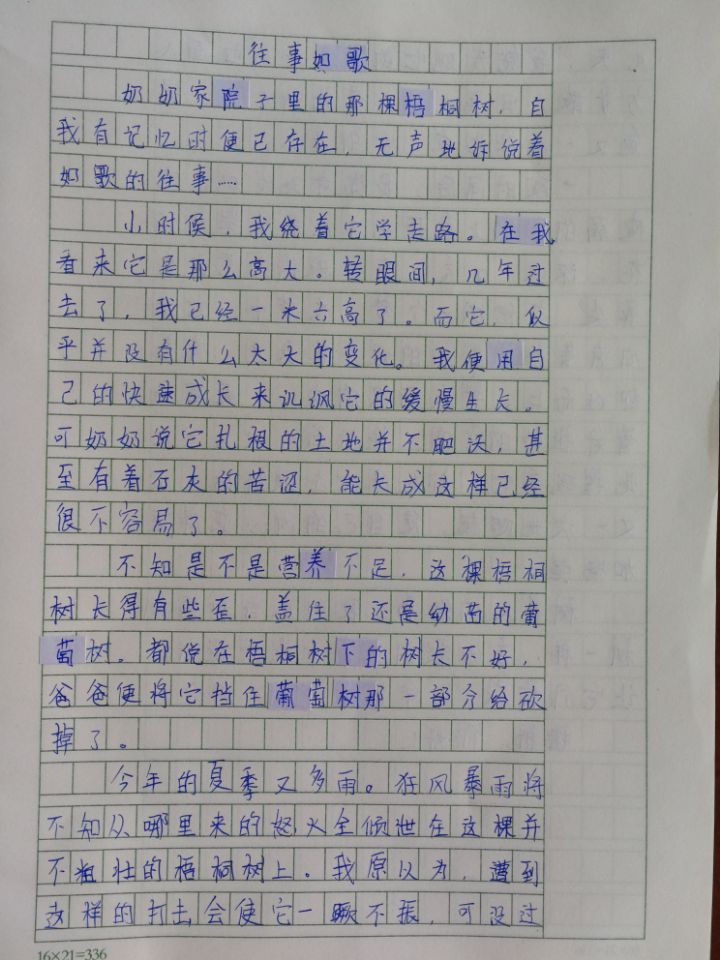 往事如歌
奶奶家院子里的那棵梧桐树，自
我有记忆时便已存在，无声地诉说着
如歌的往事……
小时候，我绕着它学走路。在我
看来它是那么高大。转眼间，几年过
去了，我已经一米六高了。而它，似
乎并没有什么太大的变化。我便用自
己的快速成长来讥讽它的缓慢生长。
可奶奶说它扎根的土地并不肥沃，甚
至有着石灰的苦涩，能长成这样已经
很不容易了。
不知是不是营养不足，这棵梧桐
树长得有些歪，盖住了还是幼苗的葡
萄树。都说在梧桐树下的树长不好，
爸爸便将它挡住葡萄树那一部分给砍
掉了。
今年的夏季又多雨。狂风暴雨将
不知从哪里来的怒火全倾泄在这棵并
不粗壮的梧桐树上。我原以为，遭到
这样的打击会使它一蹶不振，可没过
16×21=336